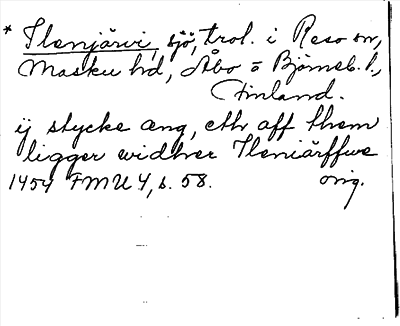 * Ilenjärvi, sjö, trol. i Reso sn,
Masku hd, Åbo o Björneb. l.,
Finland.
ij stycke æng, eth aff them
ligger widher Ileniärffwe
1454 FMU 4, s. 58. orig.